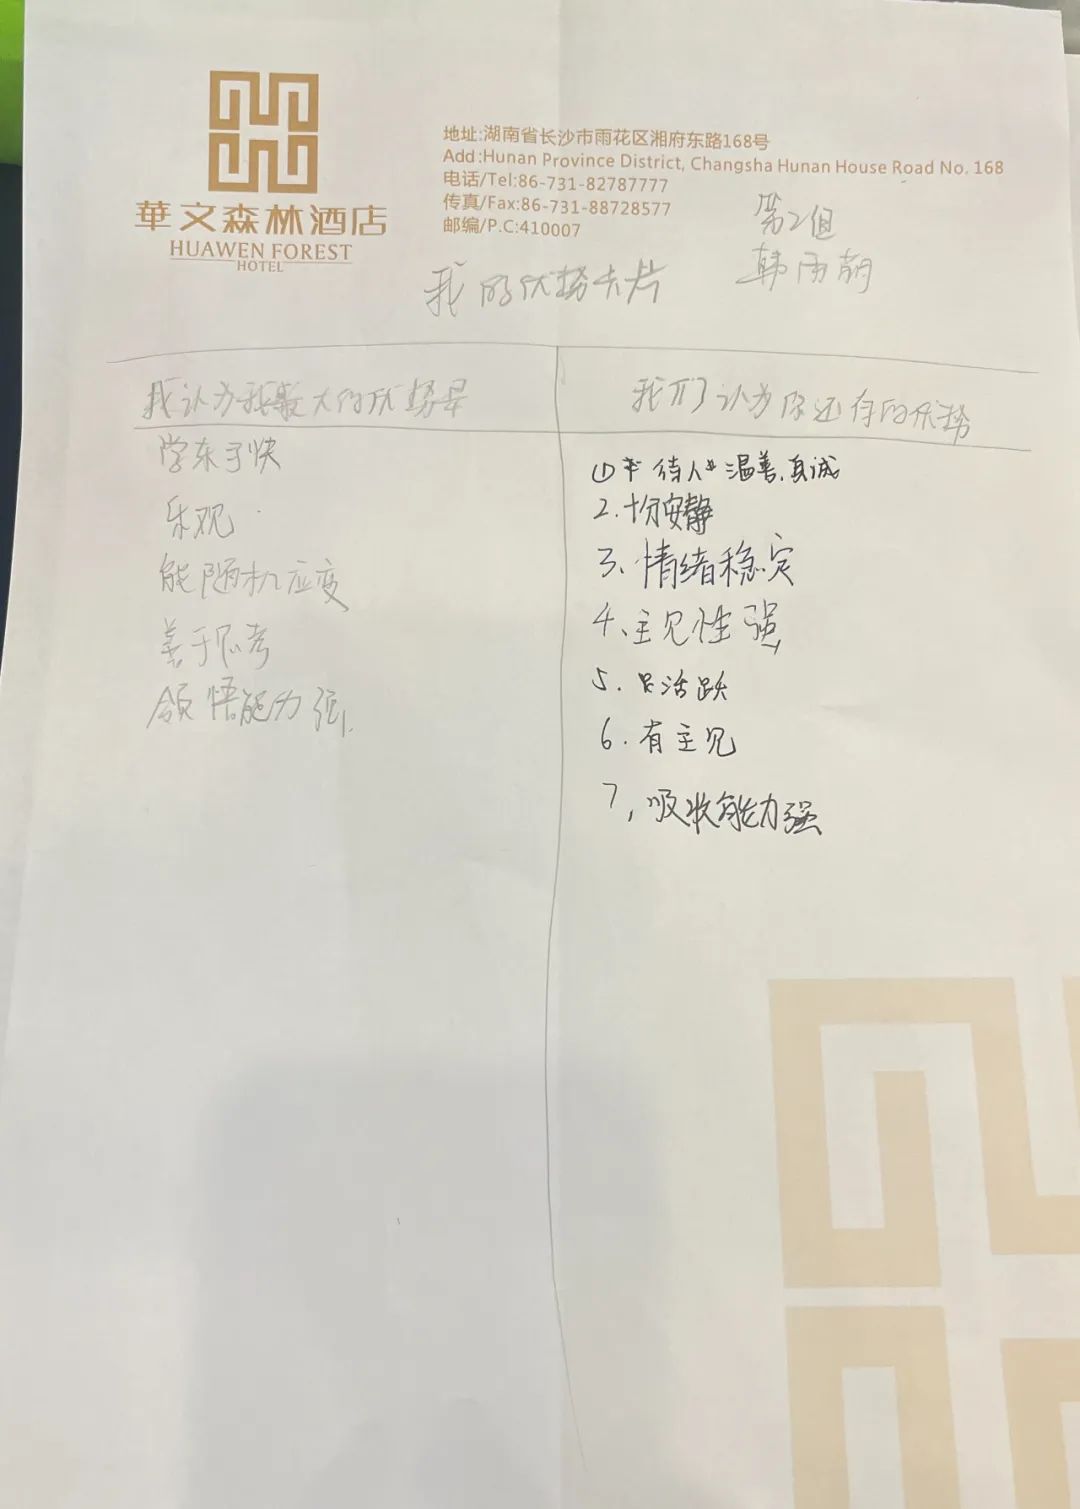 華文森林酒店
HUAWEN FOREST
HOTEL
地址:湖南省长沙市雨花区湘府东路168号
Add:Hunan Province District, Changsha Hunan House Road No. 168
电话/Tel:86-731-82787777
传真/Fax:86-731-88728577
邮编/P.C:410007
第2组
韩雨
我的优势卡片
我认为我最大的优势是
学东西快
乐观
能随机应变
善于思考
领悟能力强
我们认为你还有的优势
① 待人 温善,真诚
2.十分安静
3、情绪稳定
4、主见性强
5. 活跃
6.有主见
7,吸收能力强